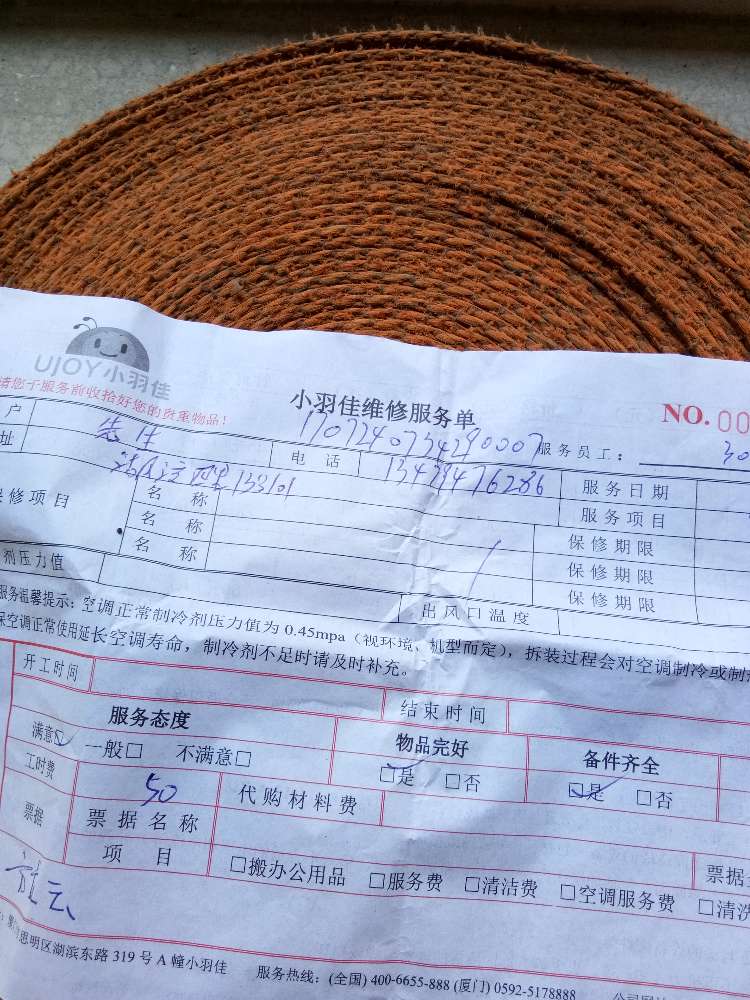 UJOY小羽佳
请您于服务前收拾好您的贵重物品!
小羽佳维修服务单
NO. 00
户 先生 1707240734290007 服务员工: 30
址 电话 13424476286 服务日期
133101
保修项目 名称 服务项目
名称 保修期限
名称 保修期限
保修期限
剂压力值 出风口温度
服务温馨提示: 空调正常制冷剂压力值为 0.45mpa (视环境、机型而定), 拆装过程会对空调制冷或制
保空调正常使用延长空调寿命, 制冷剂不足时请及时补充。
开工时间 结束时间
服务态度 物品完好 备件齐全
满意☑ 一般□ 不满意□ ☑是 □否 ☑是 □否
工时费 50 代购材料费
票据 票据名称
项目 □搬办公用品 □服务费 □清洁费 □空调服务费 □清洗
票据
思明区湖滨东路 319 号 A 幢小羽佳 服务热线: (全国) 400-6655-888 (厦门) 0592-5178888 公司网